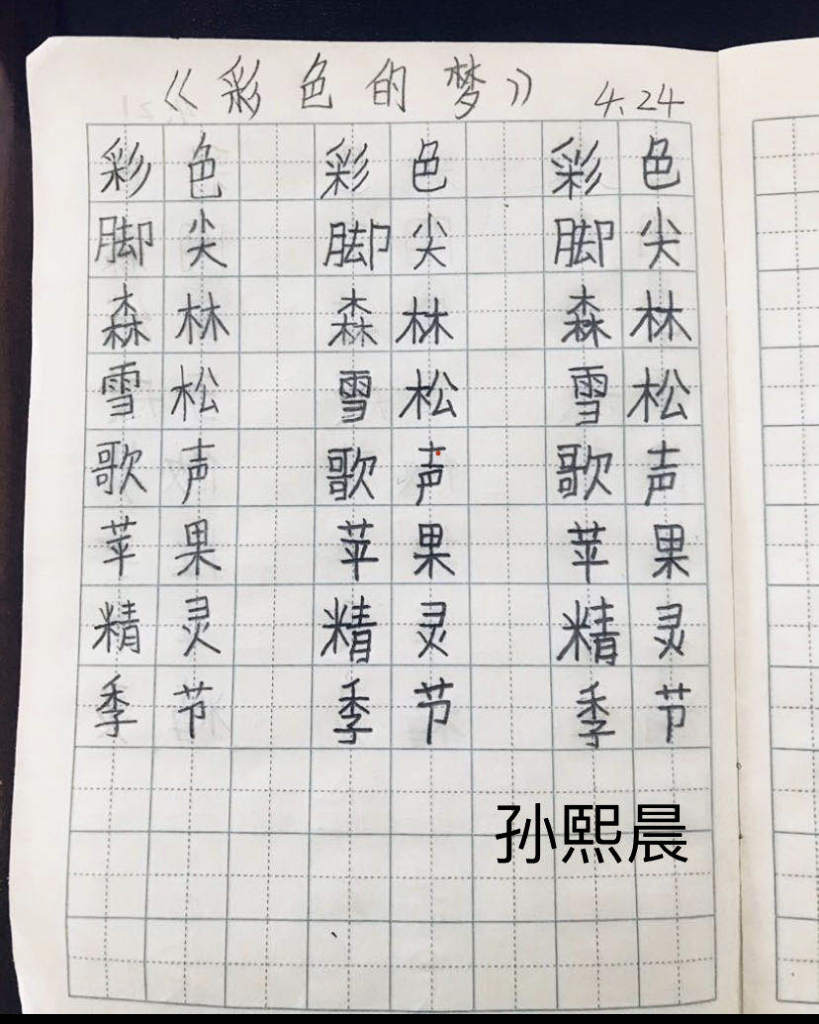 《彩色的梦》 4.24
彩色 彩色 彩色
脚尖 脚尖 脚尖
森林 森林 森林
雪松 雪松 雪松
歌声 歌声 歌声
苹果 苹果 苹果
精灵 精灵 精灵
季节 季节 季节
孙熙晨